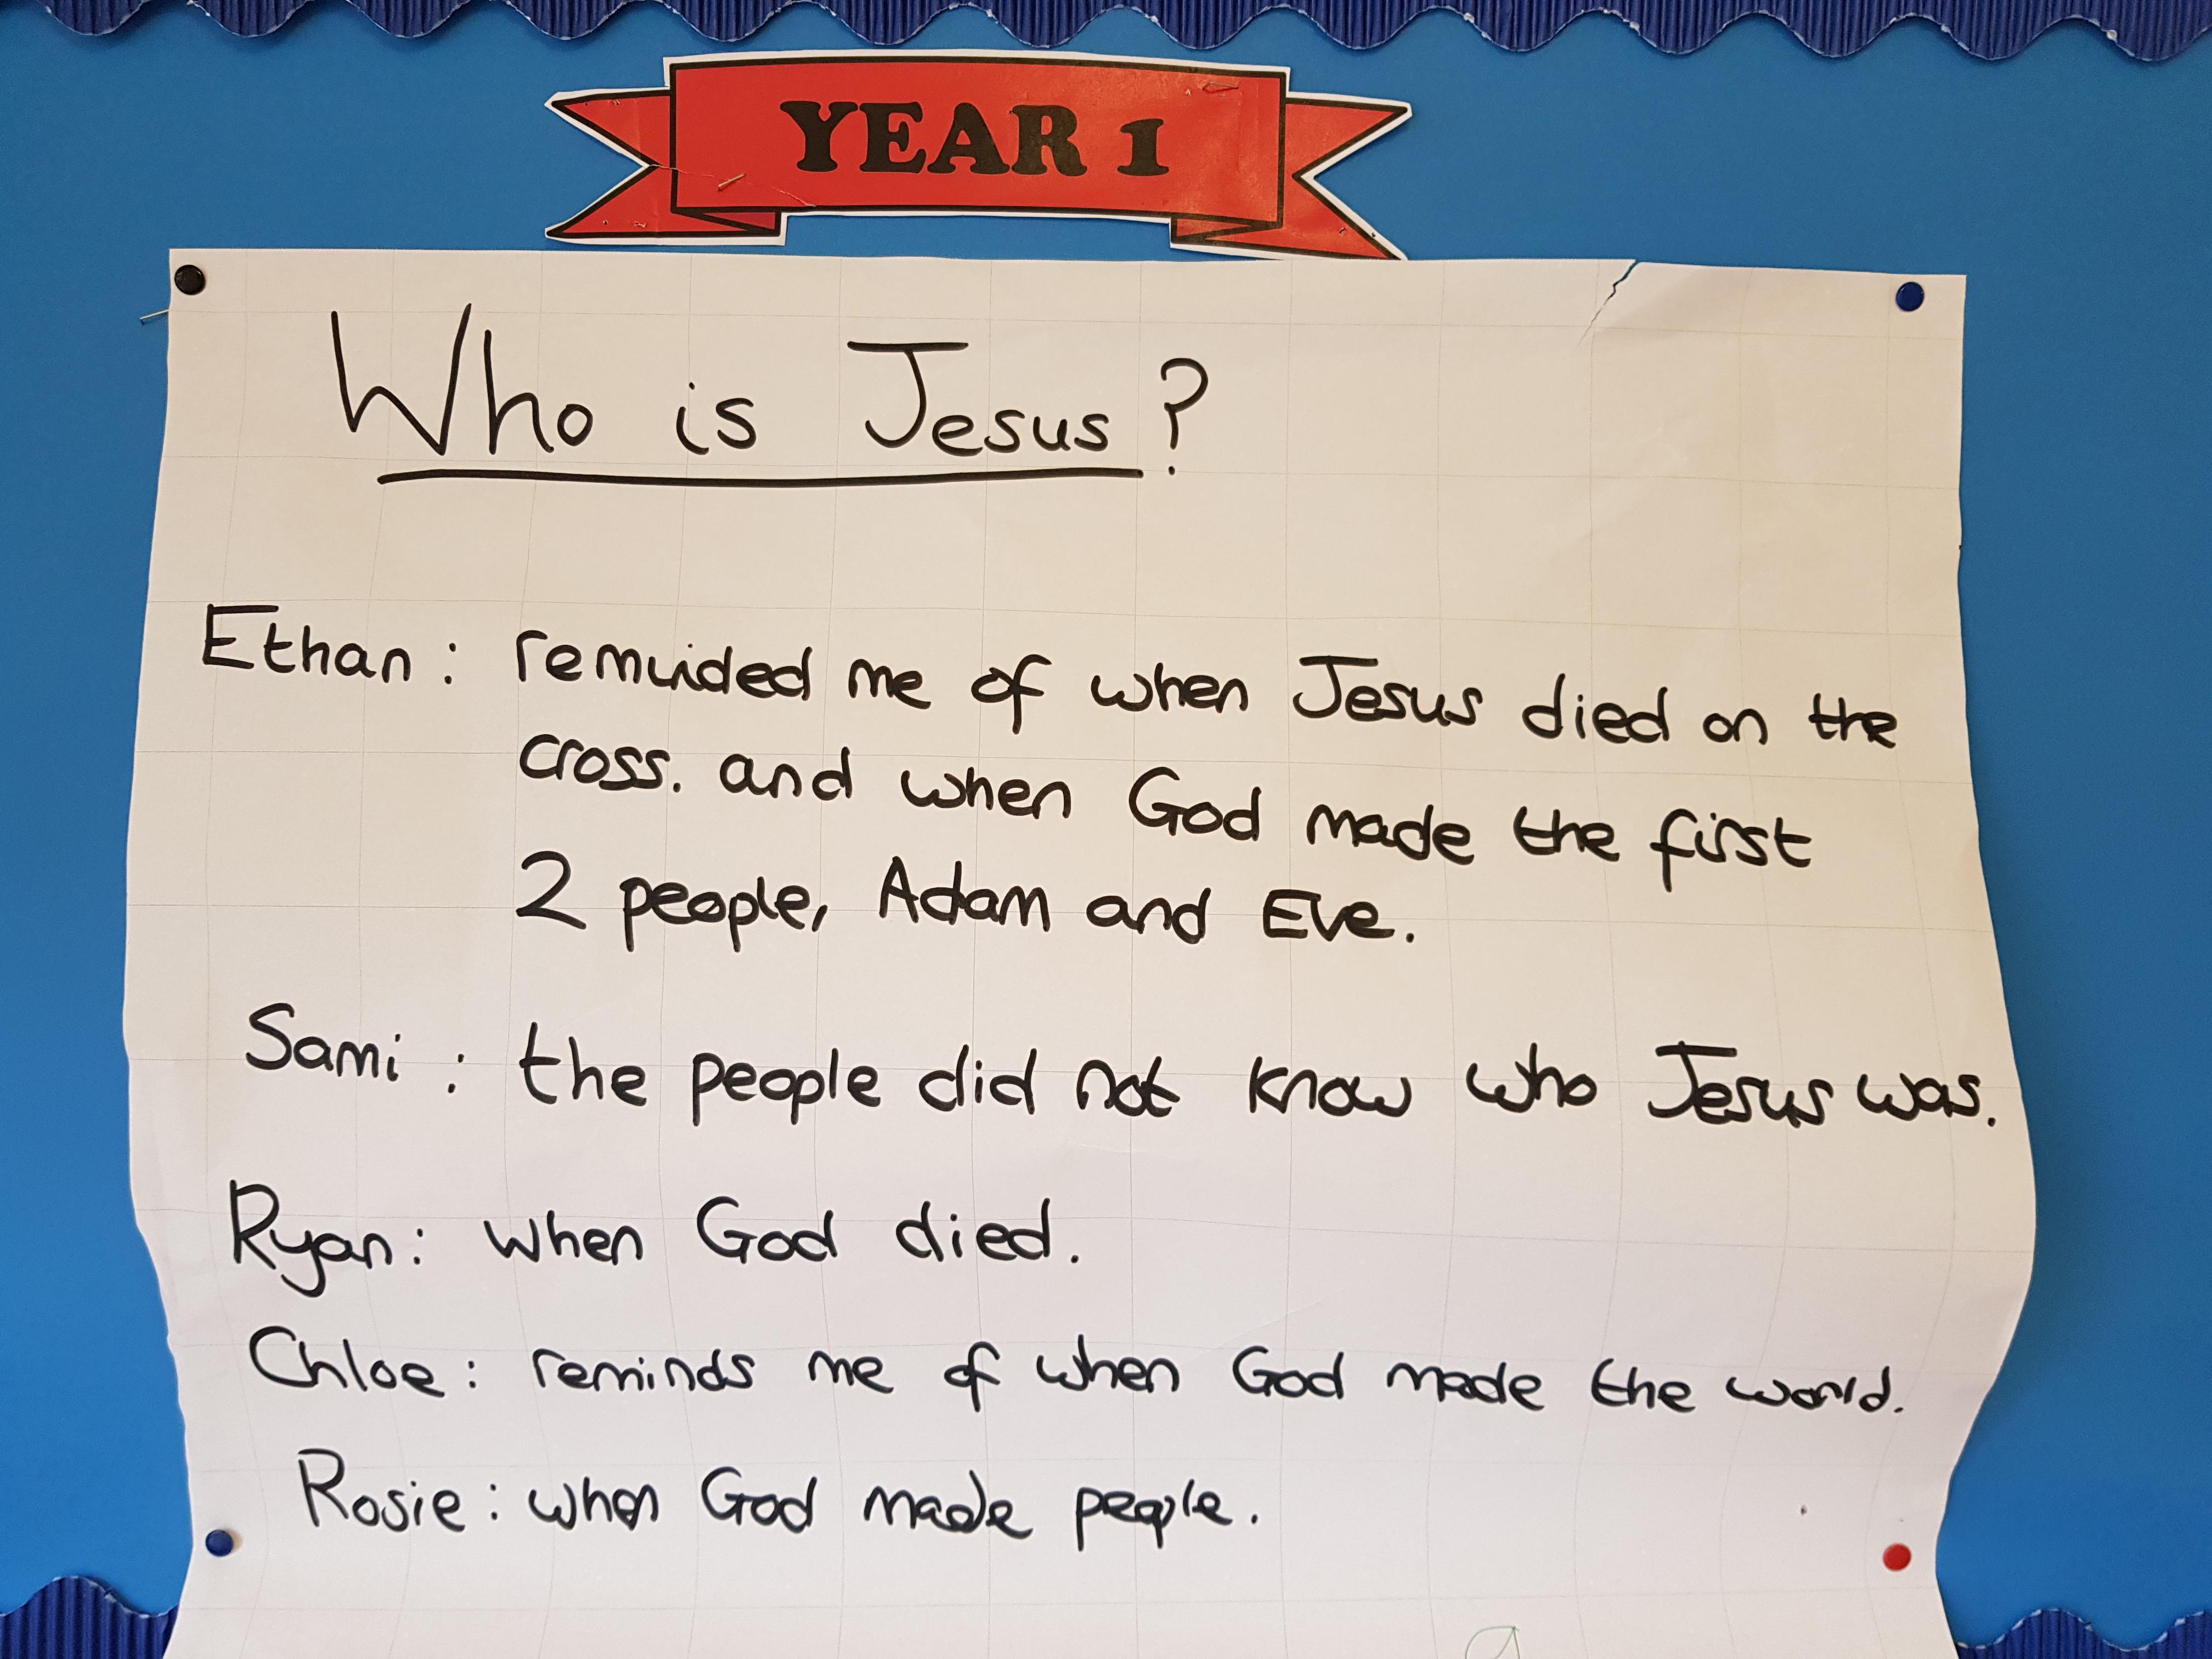 YEAR 1
Who is Jesus?
Ethan: remuided me of when Jesus died on the
cross. and when God made the first
2 people, Adam and Eve.
Sami: the people did not know who Jesus was.
Ryan: when God died.
Chloe: reminds me of when God made the world.
Rosie: when God made people.